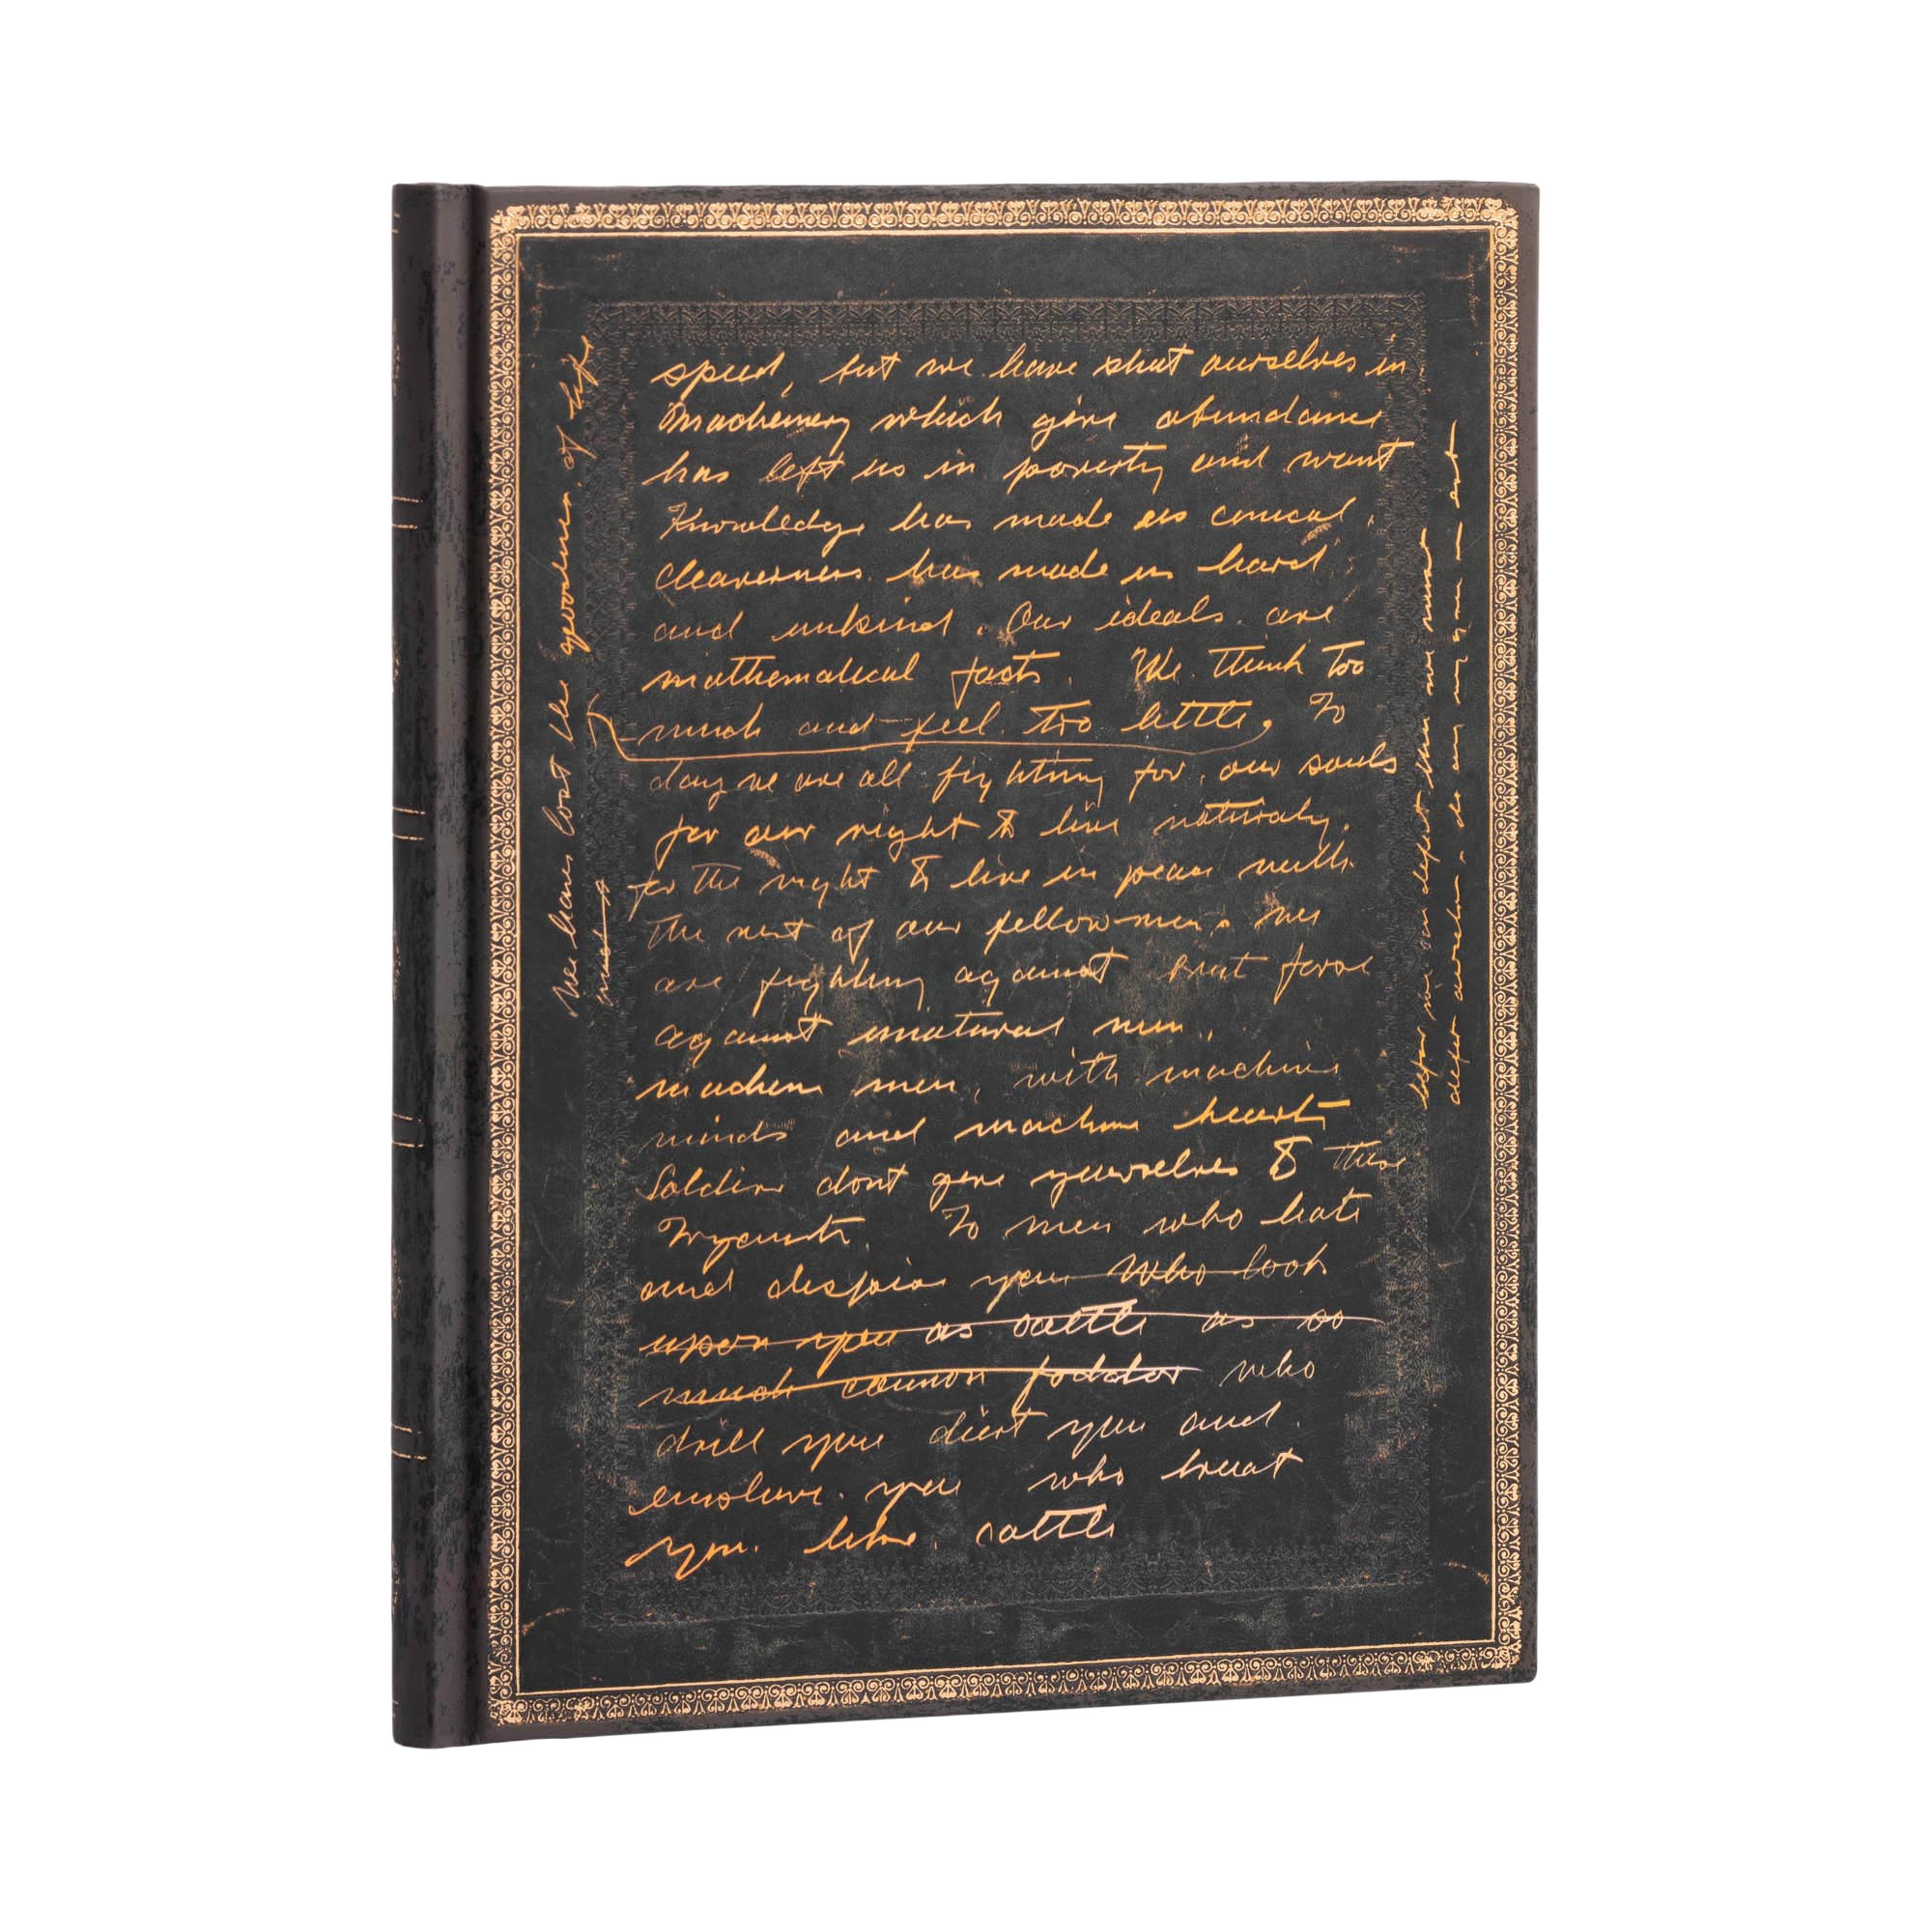 speed, but we have shut ourselves in
Machinery which give abundance
has left us in poverty and want
Knowledge has made us cinical,
cleaverness has made us hard
and unkind. Our ideals are
mathematical facts. We think too
much and feel too little. To
day we are all fighting for our souls
for our right to live naturaly.
for the right to live in peace with
the rest of our fellow men. We
are fighting against brut force
against unnatural men.
machine men, with machine
minds and machine hearts
Soldiers dont give yourselves to these
To men who hate
and despise you who look
upon you as cattle as so
much cannon fodder who
drill you diert you and
enslave you who treat
you like cattle
We have lost the goodness of life